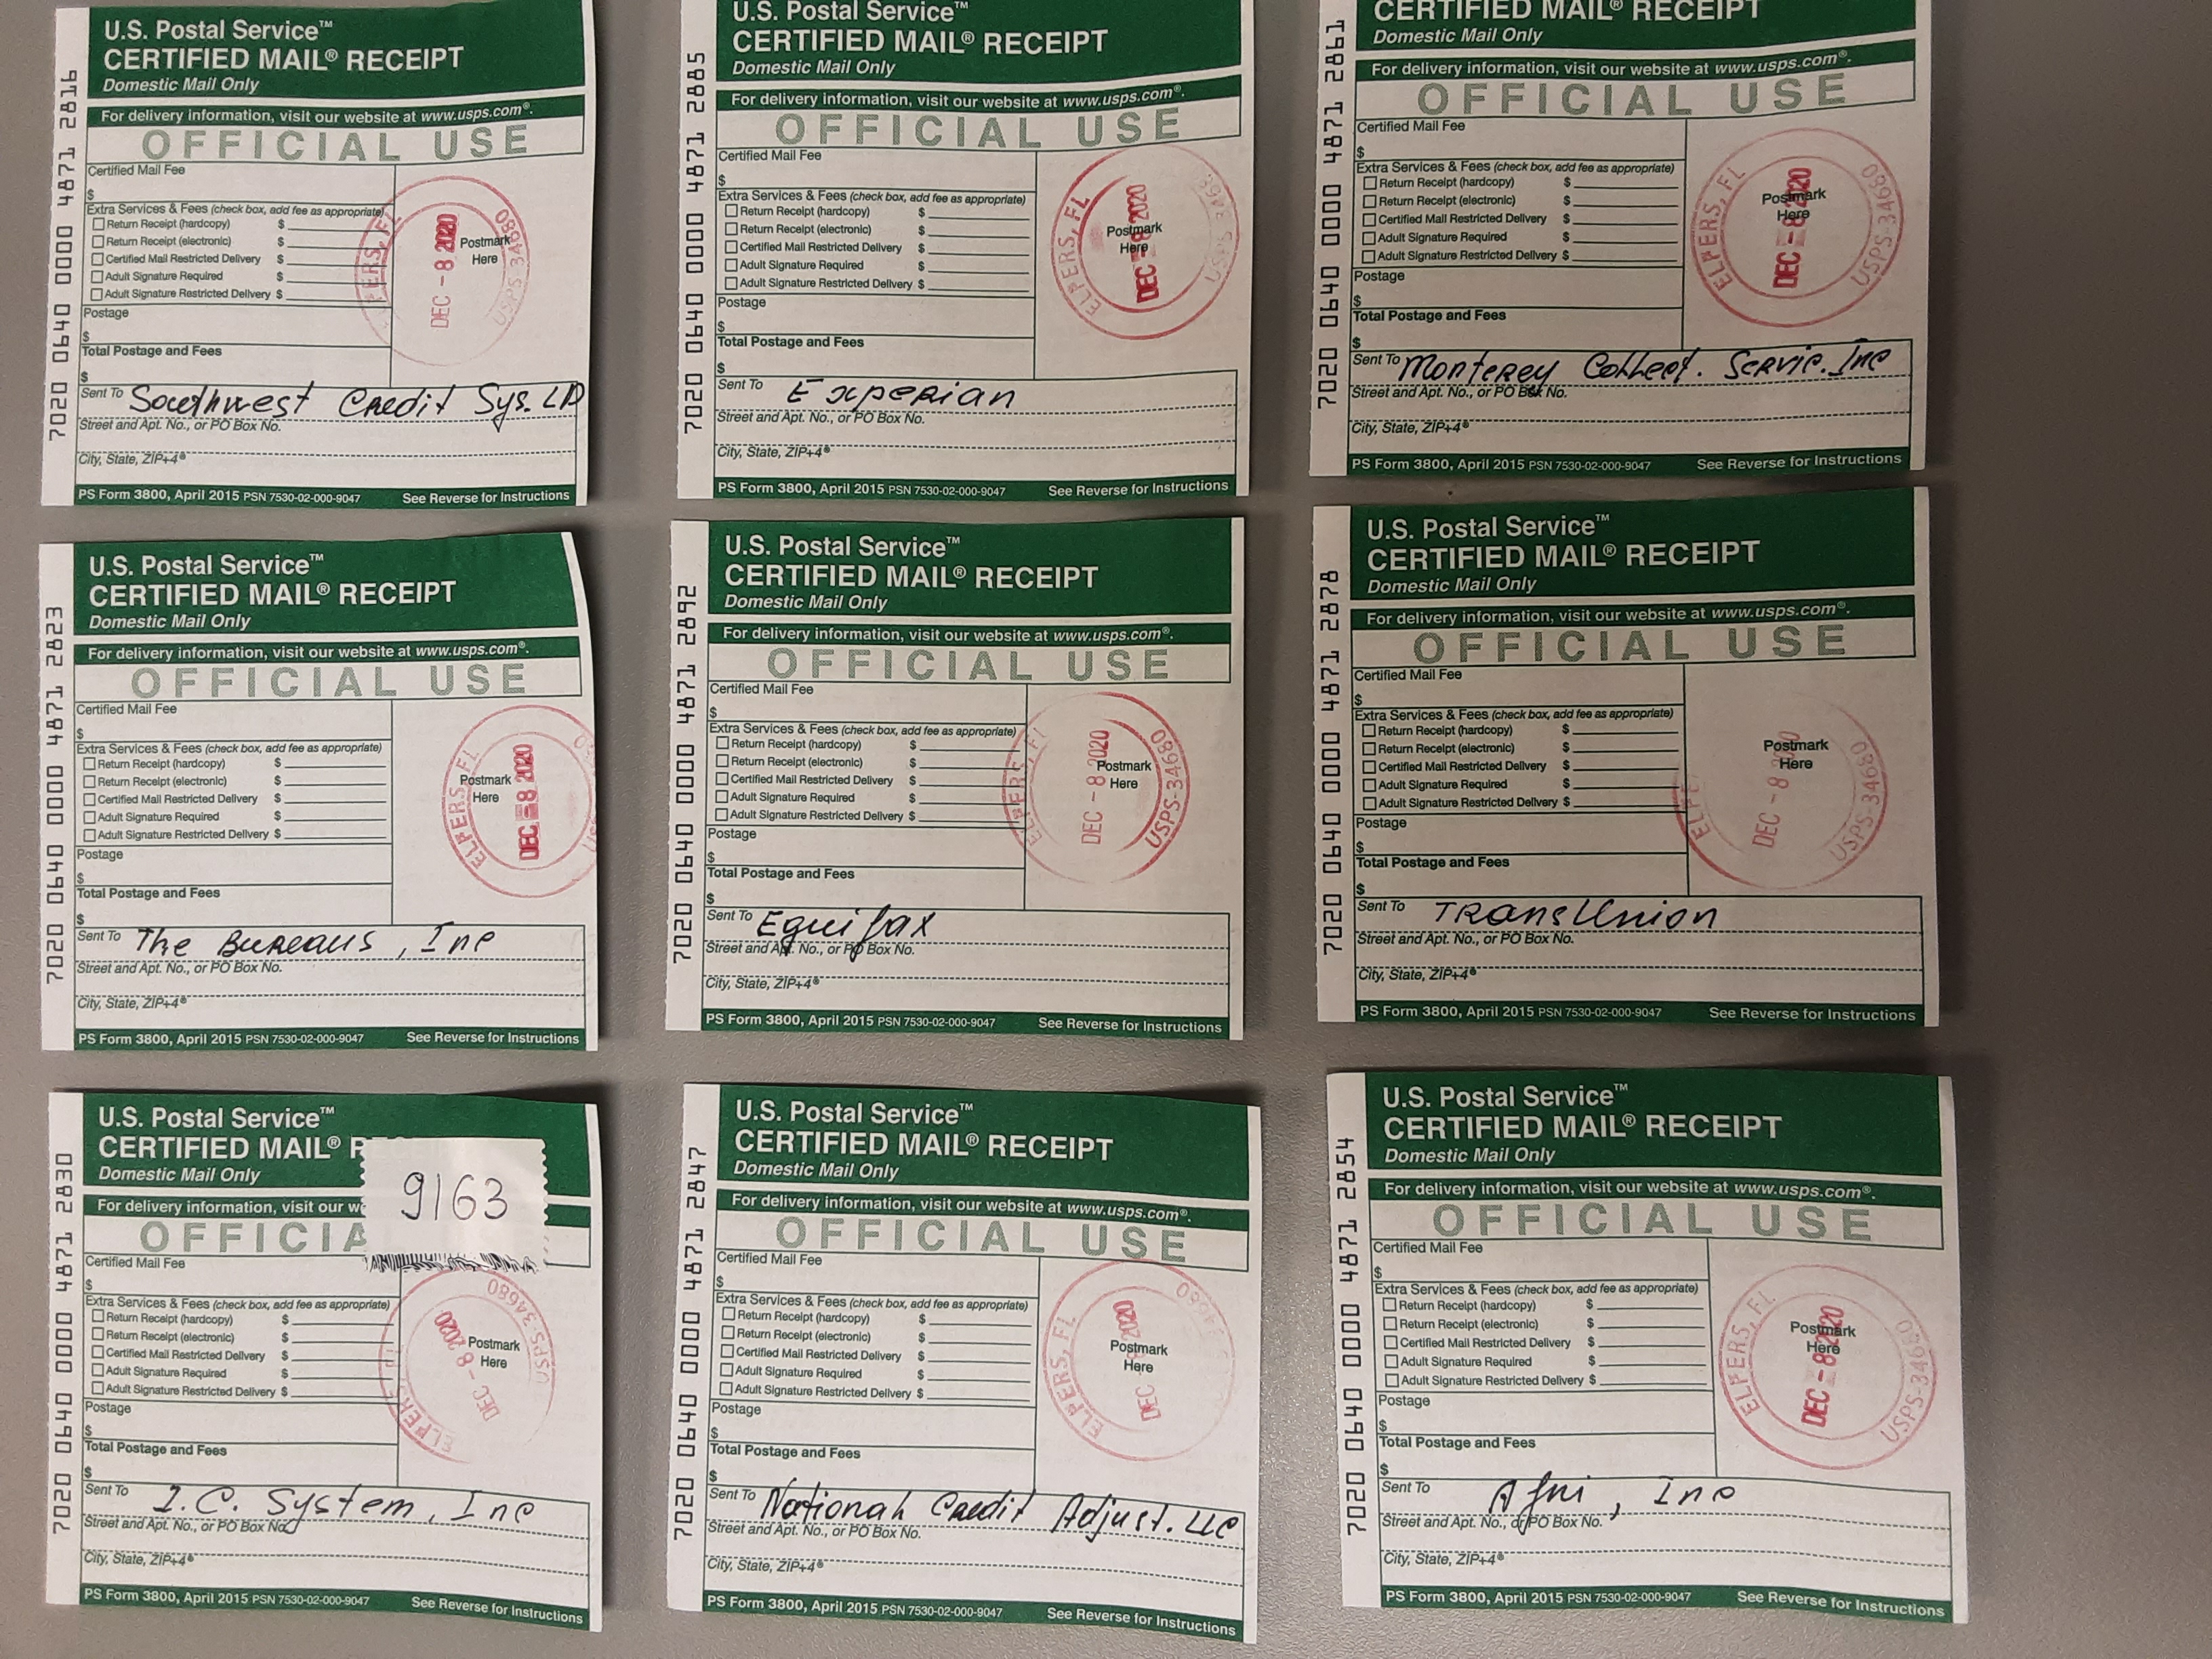 7020 0640 0000 4871 2830
U.S. Postal Service™
CERTIFIED MAIL® R
Domestic Mail Only
For delivery information, visit our w
9163
OFFICIA
Certified Mail Fee
$
Extra Services & Fees (check box, add fee as appropriate)
Return Receipt (hardcopy) $
Return Receipt (electronic) $
Certified Mail Restricted Delivery $
Adult Signature Required $
Adult Signature Restricted Delivery $
Postmark
Here
ELPERS, FL
DEC -8 2020
USPS-34680
Postage
$
Total Postage and Fees
$
Sent To I.C. System, Inc
Street and Apt. No., or PO Box No.
City, State, ZIP+4®
PS Form 3800, April 2015 PSN 7530-02-000-9047 See Reverse for Instructions
7020 0640 0000 4871 2823
U.S. Postal Service™
CERTIFIED MAIL® RECEIPT
Domestic Mail Only
For delivery information, visit our website at www.usps.com®.
OFFICIAL USE
Certified Mail Fee
$
Extra Services & Fees (check box, add fee as appropriate)
Return Receipt (hardcopy) $
Return Receipt (electronic) $
Certified Mail Restricted Delivery $
Adult Signature Required $
Adult Signature Restricted Delivery $
Postmark
Here
ELPERS, FL
DEC -8 2020
Postage
$
Total Postage and Fees
$
Sent To The Bureaus, Inc
Street and Apt. No., or PO Box No.
City, State, ZIP+4®
PS Form 3800, April 2015 PSN 7530-02-000-9047 See Reverse for Instructions
7020 0640 0000 4871 2816
U.S. Postal Service™
CERTIFIED MAIL® RECEIPT
Domestic Mail Only
For delivery information, visit our website at www.usps.com®.
OFFICIAL USE
Certified Mail Fee
$
Extra Services & Fees (check box, add fee as appropriate)
Return Receipt (hardcopy) $
Return Receipt (electronic) $
Certified Mail Restricted Delivery $
Adult Signature Required $
Adult Signature Restricted Delivery $
Postmark
Here
ELPERS, FL
DEC -8 2020
USPS 34680
Postage
$
Total Postage and Fees
$
Sent To Southwest Credit Sys. LP
Street and Apt. No., or PO Box No.
City, State, ZIP+4®
PS Form 3800, April 2015 PSN 7530-02-000-9047 See Reverse for Instructions
7020 0640 0000 4871 2847
U.S. Postal Service™
CERTIFIED MAIL® RECEIPT
Domestic Mail Only
For delivery information, visit our website at www.usps.com®.
OFFICIAL USE
Certified Mail Fee
$
Extra Services & Fees (check box, add fee as appropriate)
Return Receipt (hardcopy) $
Return Receipt (electronic) $
Certified Mail Restricted Delivery $
Adult Signature Required $
Adult Signature Restricted Delivery $
Postmark
Here
ELPERS, FL
DEC 2020
34680
Postage
$
Total Postage and Fees
$
Sent To National Credit Adjust. LLC
Street and Apt. No., or PO Box No.
City, State, ZIP+4®
PS Form 3800, April 2015 PSN 7530-02-000-9047 See Reverse for Instructions
7020 0640 0000 4871 2892
U.S. Postal Service™
CERTIFIED MAIL® RECEIPT
Domestic Mail Only
For delivery information, visit our website at www.usps.com®.
OFFICIAL USE
Certified Mail Fee
$
Extra Services & Fees (check box, add fee as appropriate)
Return Receipt (hardcopy) $
Return Receipt (electronic) $
Certified Mail Restricted Delivery $
Adult Signature Required $
Adult Signature Restricted Delivery $
Postmark
Here
ELPERS, FL
DEC -8 2020
USPS-34680
Postage
$
Total Postage and Fees
$
Sent To Equifax
Street and Apt. No., or PO Box No.
City, State, ZIP+4®
PS Form 3800, April 2015 PSN 7530-02-000-9047 See Reverse for Instructions
7020 0640 0000 4871 2885
U.S. Postal Service™
CERTIFIED MAIL® RECEIPT
Domestic Mail Only
For delivery information, visit our website at www.usps.com®.
OFFICIAL USE
Certified Mail Fee
$
Extra Services & Fees (check box, add fee as appropriate)
Return Receipt (hardcopy) $
Return Receipt (electronic) $
Certified Mail Restricted Delivery $
Adult Signature Required $
Adult Signature Restricted Delivery $
Postmark
Here
ELPERS, FL
DEC -8 2020
USPS 3468
Postage
$
Total Postage and Fees
$
Sent To Experian
Street and Apt. No., or PO Box No.
City, State, ZIP+4®
PS Form 3800, April 2015 PSN 7530-02-000-9047 See Reverse for Instructions
7020 0640 0000 4871 2854
U.S. Postal Service™
CERTIFIED MAIL® RECEIPT
Domestic Mail Only
For delivery information, visit our website at www.usps.com®.
OFFICIAL USE
Certified Mail Fee
$
Extra Services & Fees (check box, add fee as appropriate)
Return Receipt (hardcopy) $
Return Receipt (electronic) $
Certified Mail Restricted Delivery $
Adult Signature Required $
Adult Signature Restricted Delivery $
Postmark
Here
ELPERS, FL
DEC -8 2020
USPS-34680
Postage
$
Total Postage and Fees
$
Sent To Afni, Inc
Street and Apt. No., or PO Box No.
City, State, ZIP+4®
PS Form 3800, April 2015 PSN 7530-02-000-9047 See Reverse for Instructions
7020 0640 0000 4871 2878
U.S. Postal Service™
CERTIFIED MAIL® RECEIPT
Domestic Mail Only
For delivery information, visit our website at www.usps.com®.
OFFICIAL USE
Certified Mail Fee
$
Extra Services & Fees (check box, add fee as appropriate)
Return Receipt (hardcopy) $
Return Receipt (electronic) $
Certified Mail Restricted Delivery $
Adult Signature Required $
Adult Signature Restricted Delivery $
Postmark
Here
ELPE
DEC -8 2020
USPS-34680
Postage
$
Total Postage and Fees
$
Sent To TransUnion
Street and Apt. No., or PO Box No.
City, State, ZIP+4®
PS Form 3800, April 2015 PSN 7530-02-000-9047 See Reverse for Instructions
7020 0640 0000 4871 2861
CERTIFIED MAIL® RECEIPT
Domestic Mail Only
For delivery information, visit our website at www.usps.com®.
OFFICIAL USE
Certified Mail Fee
$
Extra Services & Fees (check box, add fee as appropriate)
Return Receipt (hardcopy) $
Return Receipt (electronic) $
Certified Mail Restricted Delivery $
Adult Signature Required $
Adult Signature Restricted Delivery $
Postmark
Here
ELPERS, FL
DEC -8 2020
USPS-34680
Postage
$
Total Postage and Fees
$
Sent To Monterey Collect. Servic. Inc
Street and Apt. No., or PO Box No.
City, State, ZIP+4®
PS Form 3800, April 2015 PSN 7530-02-000-9047 See Reverse for Instructions